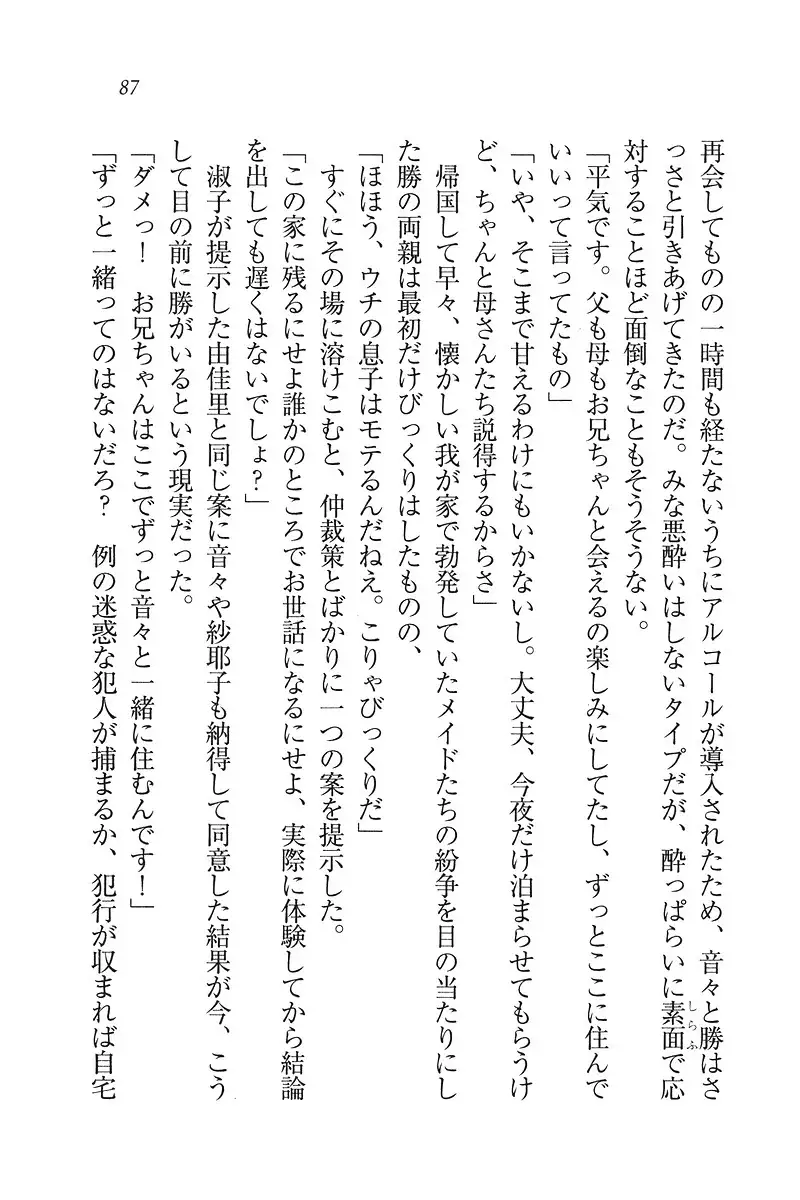 87
再会してものの一時間も経たないうちにアルコールが導入されたため、音々と勝はさ
っさと引きあげてきたのだ。みな悪酔いはしないタイプだが、酔っぱらいに素面で応
しらふ
対することほど面倒なこともそうそうない。
「平気です。父も母もお兄ちゃんと会えるの楽しみにしてたし、ずっとここに住んで
いいって言ってたもの」
「いや、そこまで甘えるわけにもいかないし。大丈夫、今夜だけ泊まらせてもらうけ
ど、ちゃんと母さんたち説得するからさ」
帰国して早々、懐かしい我が家で勃発していたメイドたちの紛争を目の当たりにし
た勝の両親は最初だけびっくりはしたものの、
「ほほう、ウチの息子はモテるんだねえ。こりゃびっくりだ」
すぐにその場に溶けこむと、仲裁策とばかりに一つの案を提示した。
「この家に残るにせよ誰かのところでお世話になるにせよ、実際に体験してから結論
を出しても遅くはないでしょ？」
淑子が提示した由佳里と同じ案に音々や紗耶子も納得して同意した結果が今、こう
して目の前に勝がいるという現実だった。
「ダメっ！　お兄ちゃんはここでずっと音々と一緒に住むんです！」
「ずっと一緒ってのはないだろ？　例の迷惑な犯人が捕まるか、犯行が収まれば自宅